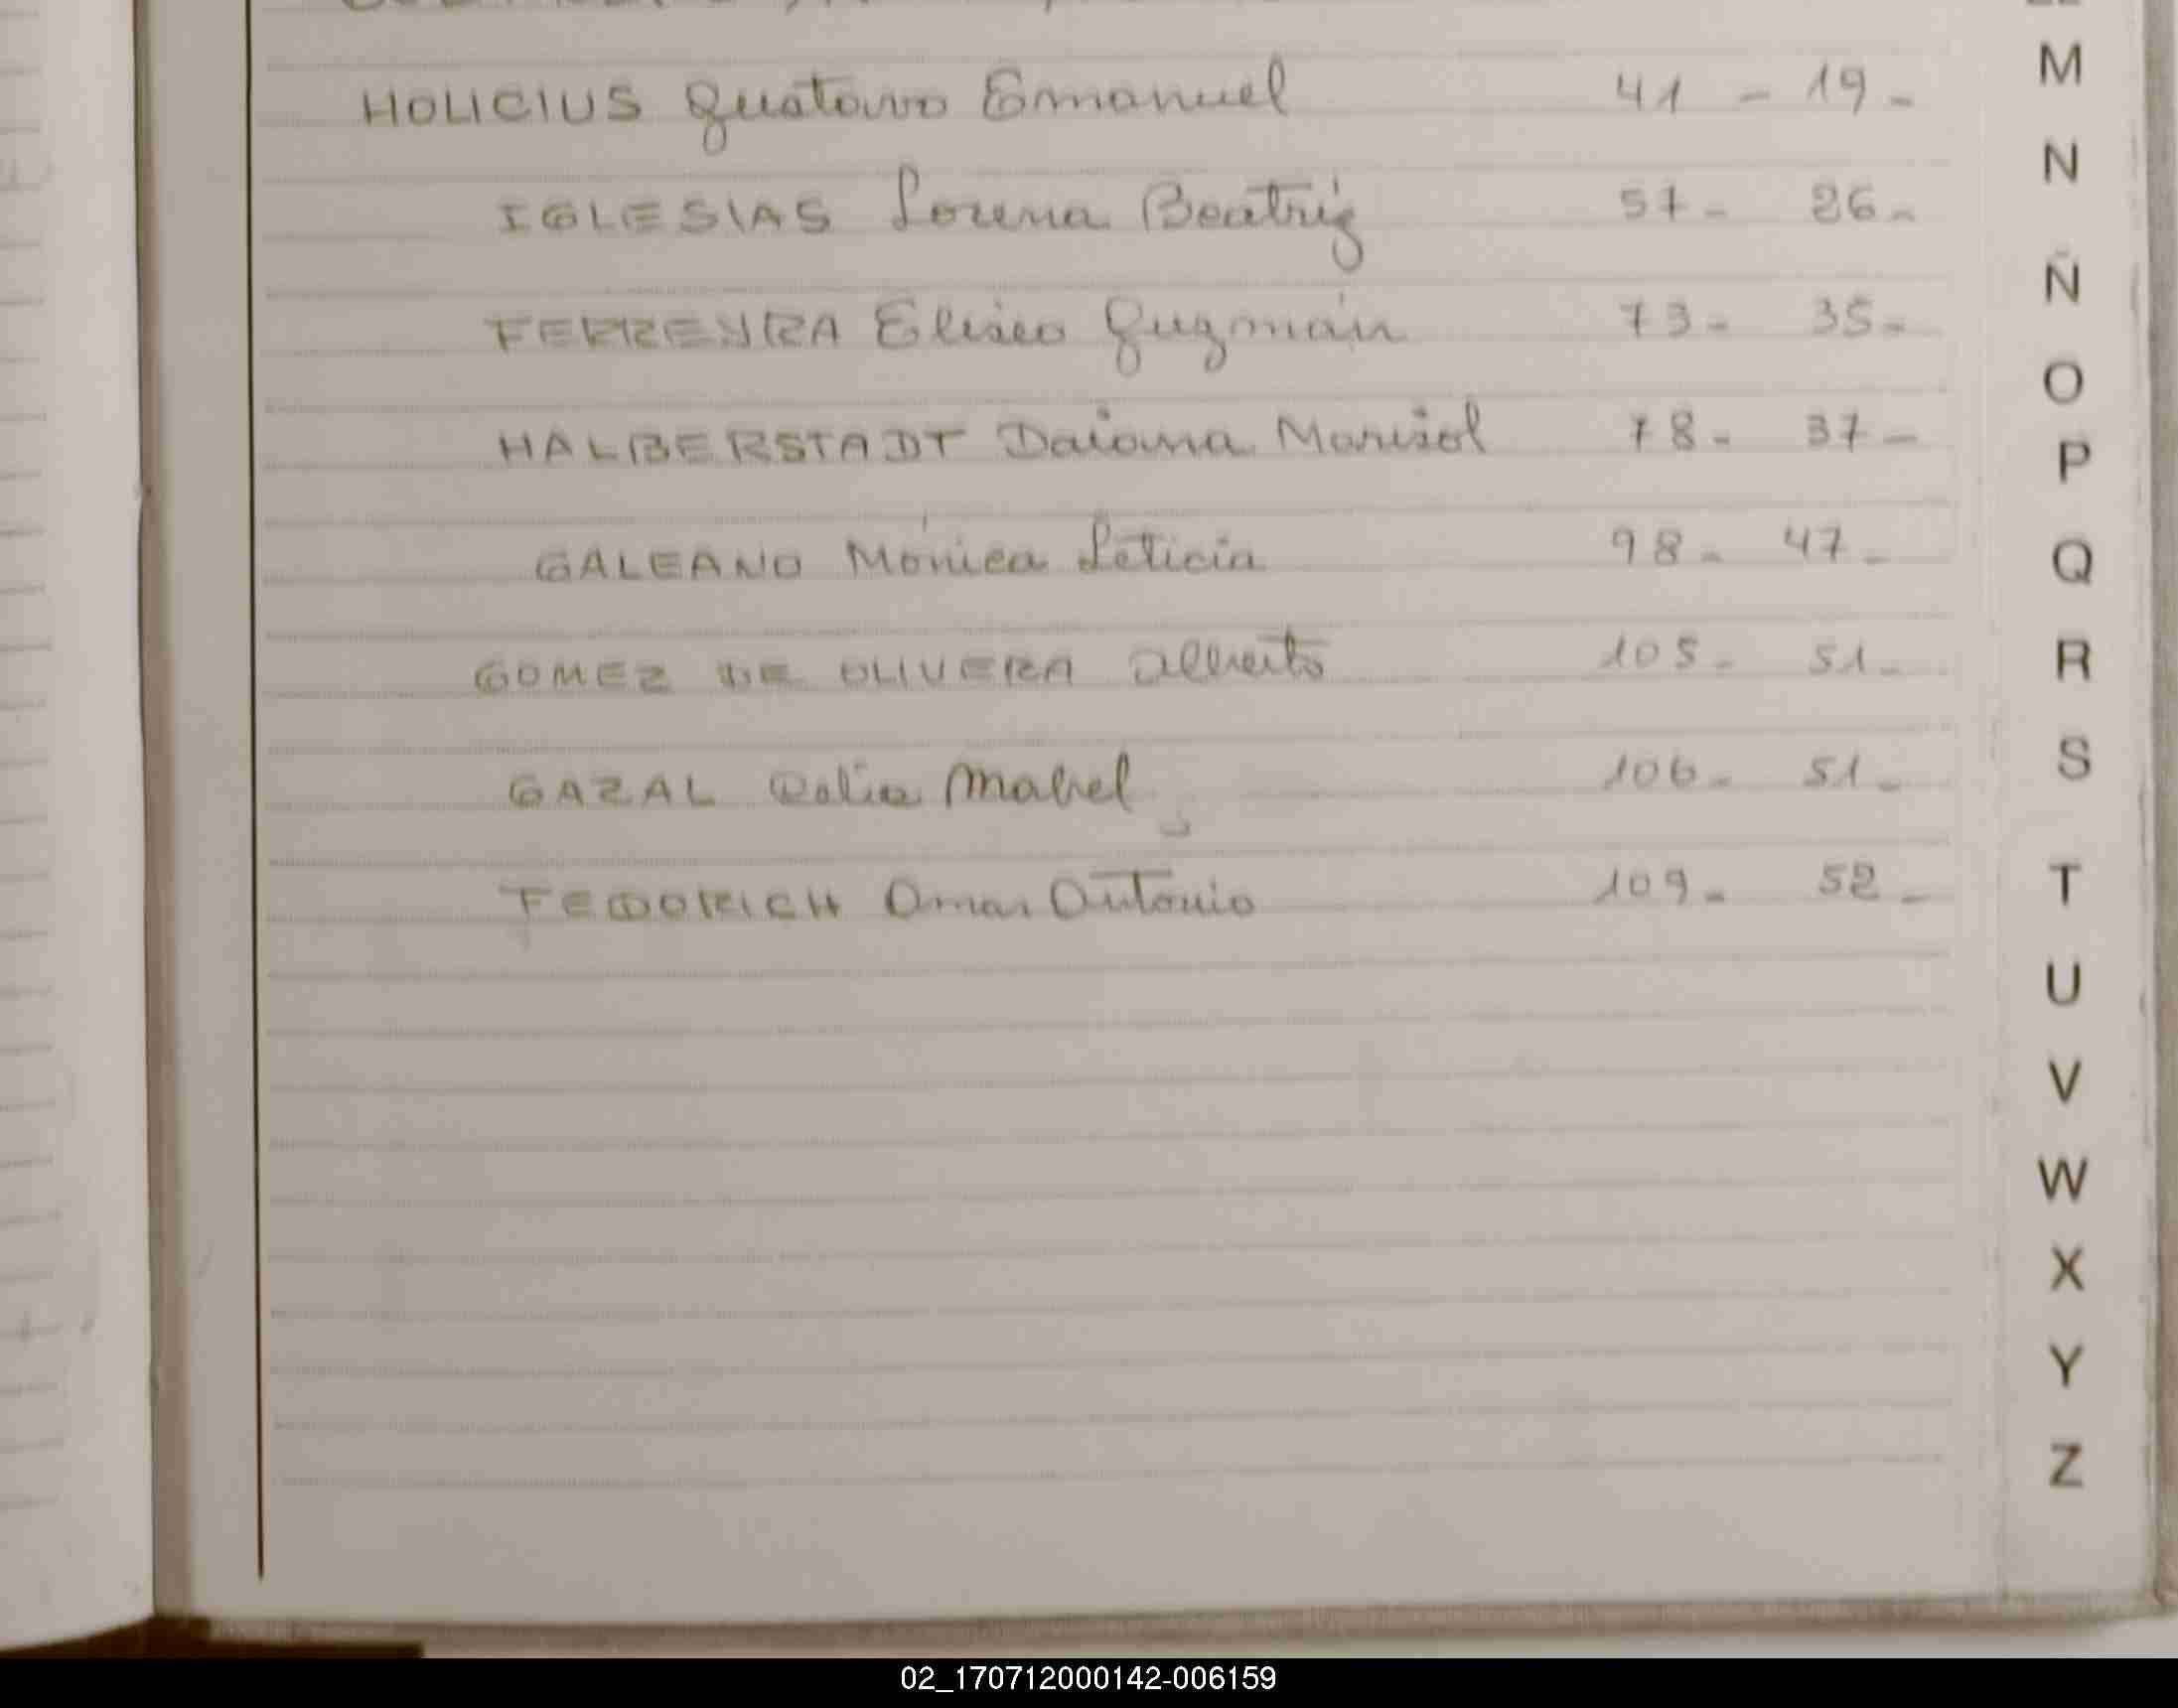 HOLICIUS Gustavo Emanuel 41 - 19 -
IGLESIAS Lorena Beatriz 57 - 26 -
FERREYRA Eliseo Guzmán 73 - 35 -
HALBERSTADT Daiana Marisol 78 - 37 -
GALEANO Mónica Leticia 98 - 47 -
GOMEZ DE OLIVERA Alberto 105 - 51 -
GAZAL Mabel 106 - 51 -
FEDORICH Omar Antonio 109 - 52 -
M
N
Ñ
O
P
Q
R
S
T
U
V
W
X
Y
Z
02_170712000142-006159